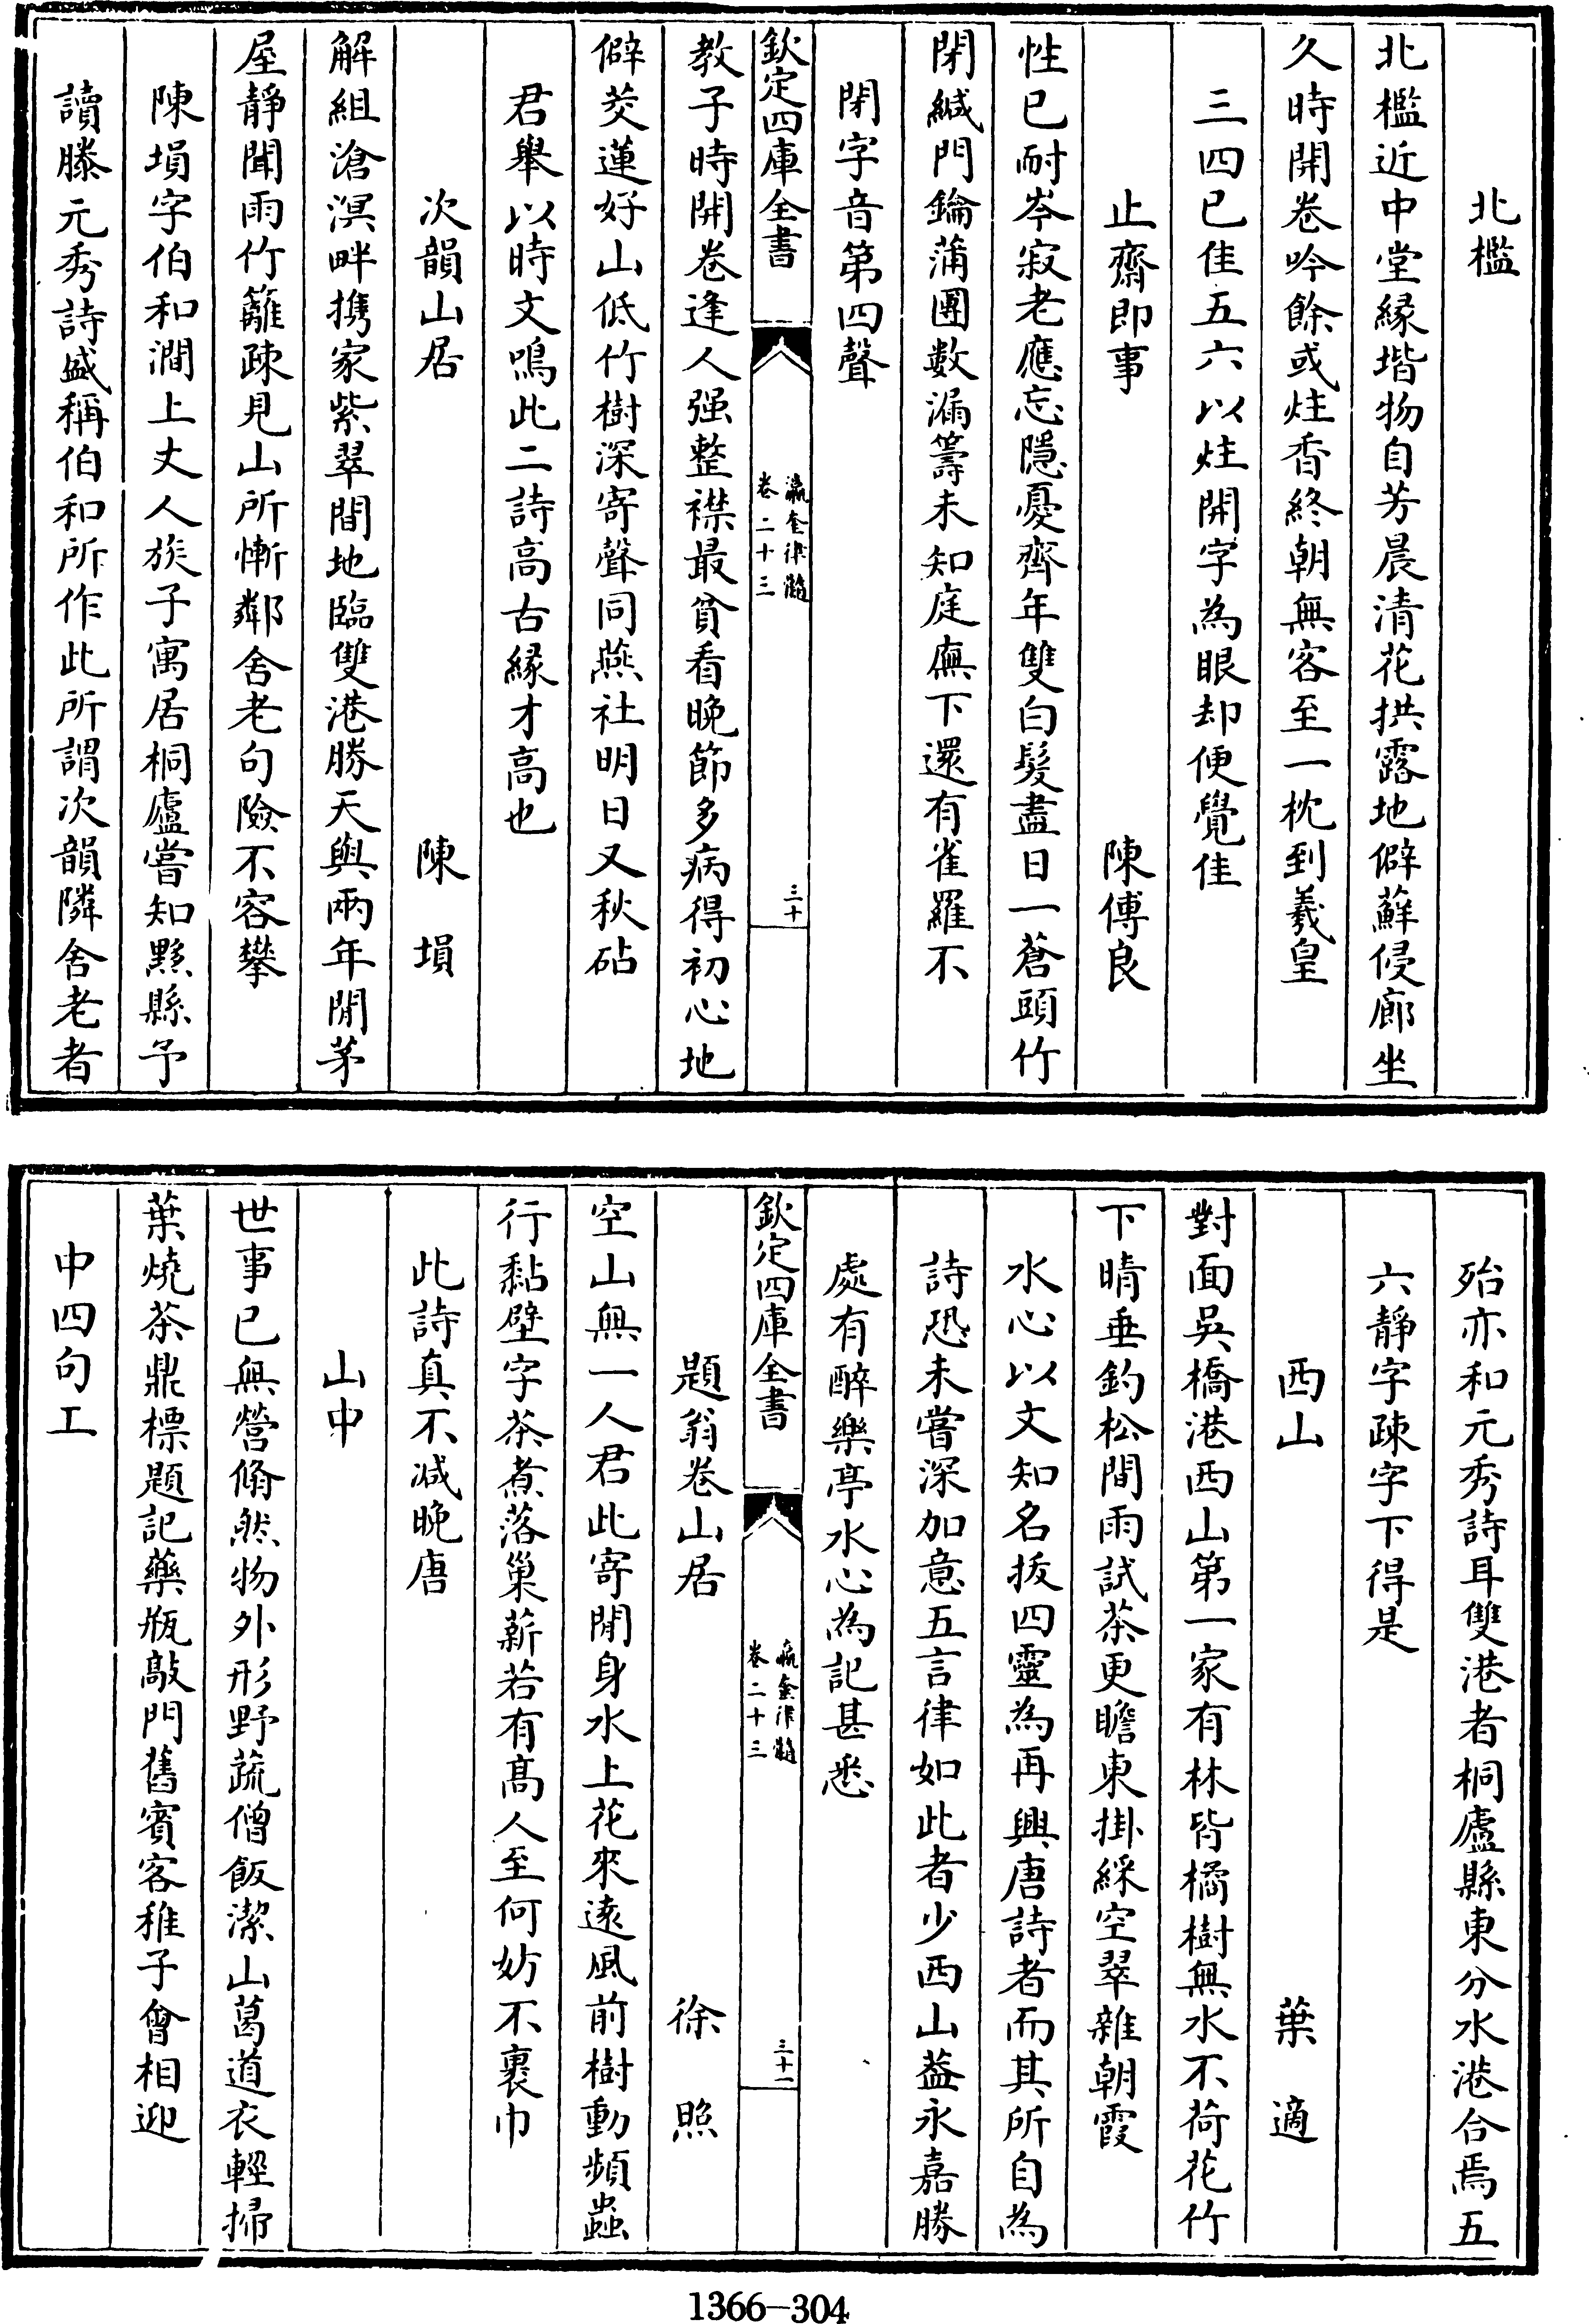 北檻
北檻近中堂緣堦物自芳晨清花拱露地僻蘚侵廊坐
久時開卷吟餘或炷香終朝無客至一枕到羲皇
三四已佳五六以炷開字為眼却便覺佳
止齋即事　陳傅良
性已耐岑寂老應忘隱憂齊年雙白髮盡日一蒼頭竹
閉緘門鑰蒲團數漏籌未知庭廡下還有雀羅不
閉字音第四聲
欽定四庫全書
瀛奎律髓
卷二十三
三十
教子時開卷逢人强整襟最貧看晚節多病得初心地
僻茭蓮好山低竹樹深寄聲同燕社明日又秋砧
君舉以時文鳴此二詩高古緣才高也
次韻山居　陳塤
解組滄溟畔携家紫翠間地臨雙港勝天與兩年閒茅
屋靜聞雨竹籬疎見山所慚鄰舍老句險不容攀
陳塤字伯和澗上丈人族子寓居桐廬嘗知黟縣予
讀滕元秀詩盛稱伯和所作此所謂次韻隣舍老者
殆亦和元秀詩耳雙港者桐廬縣東分水港合焉五
六靜字疎字下得是
西山　葉適
對面吳橋港西山第一家有林皆橘樹無水不荷花竹
下晴垂釣松間雨試茶更瞻東掛綵空翠雜朝霞
水心以文知名拔四靈為再興唐詩者而其所自為
詩恐未嘗深加意五言律如此者少西山葢永嘉勝
處有醉樂亭水心為記甚悉
欽定四庫全書
瀛奎律髓
卷二十三
三十一
題翁卷山居　徐照
空山無一人君此寄閒身水上花來遠風前樹動頻蟲
行黏壁字茶煮落巢薪若有高人至何妨不裹巾
此詩真不减晚唐
山中
世事已無營翛然物外形野蔬僧飯潔山葛道衣輕掃
葉燒茶鼎標題記藥瓶敲門舊賓客稚子會相迎
中四句工
1366-304